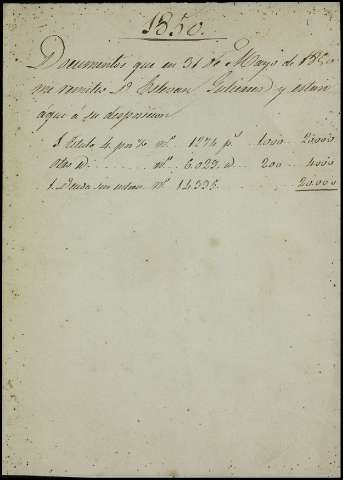 1850.
Documentos que en 31 de Mayo de 1850
me remitió Dn Esteban Gutierrez y estan
áqui á su disposicion
1. Titulo 4 por % nº. 1274 ps 1000 20.000
Otro id. nº. 6.029. id. 200 4000
1. Deuda sin interes nº. 14.335. 20.000